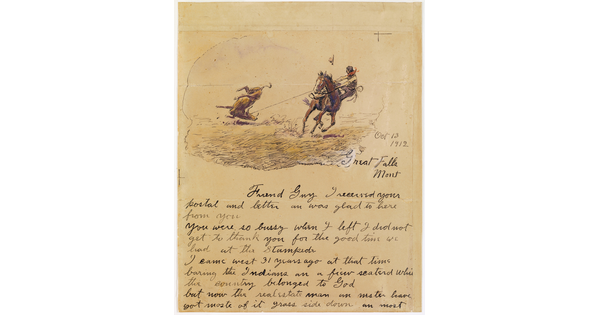 Oct 10
1912
Great Falls
Mont
Friend Guy I received your
postal and letter an was glad to here
from you
You were so bussy when I left I did not
get to thank you for the good time we
had at the Stampede
I came west 31 years ago at that time
baring the Indians an a fiew scaterd whites
the country belonged to God
but now the real estate man an nester have
got moste of it grass side down an most